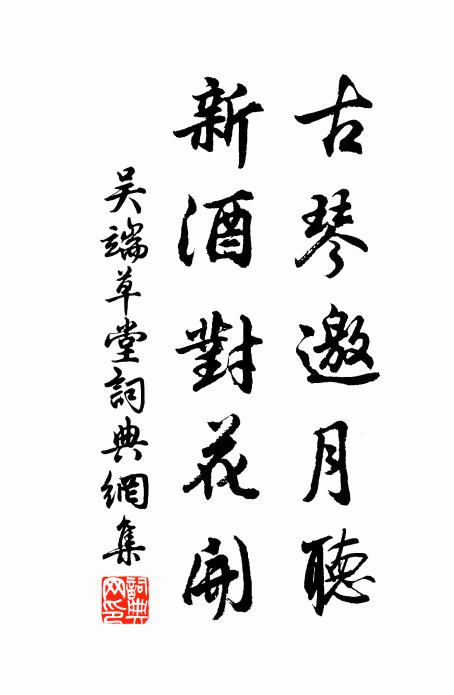 古琴邀月聽
新酒對花開
吴端草堂詞典網集
詞典网印